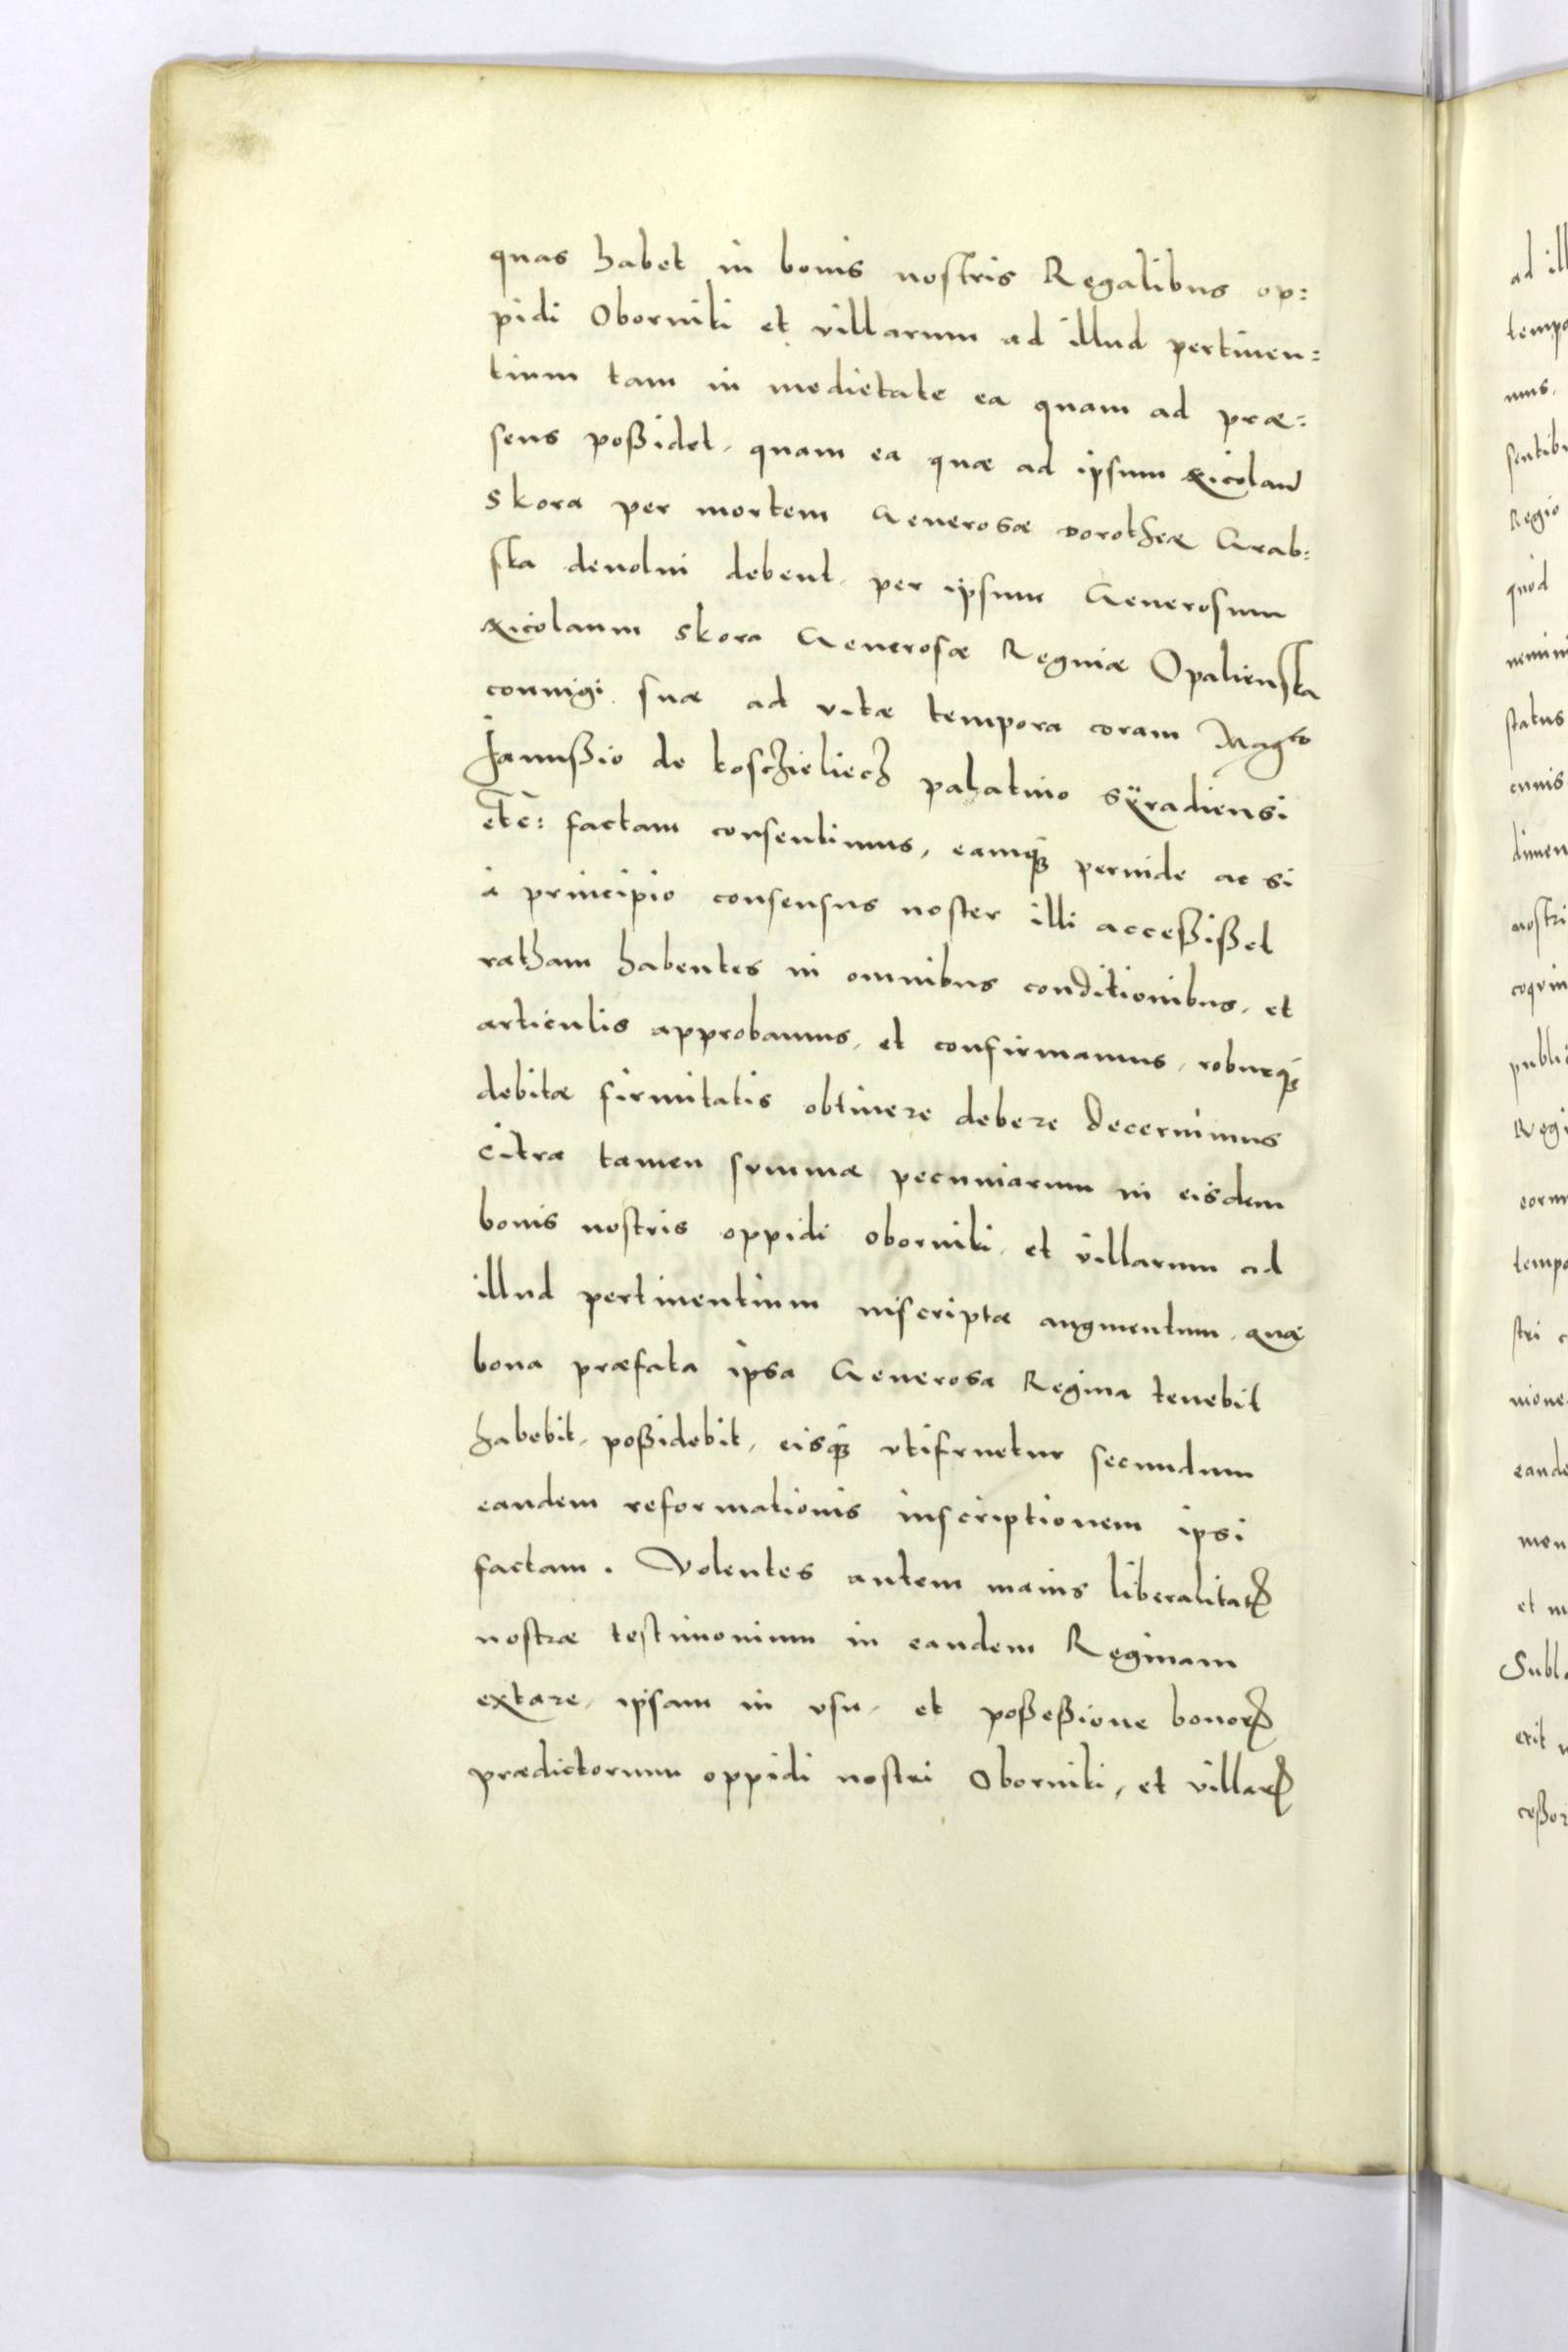 quas habet in bonis nostris Regalibus op:
pidi Oborniki et villarum ad illud pertinen:
tium tam in medietate ea quam ad præ:
sens poßidet, quam ea quæ ad ipsum Nicolaũ
Skora per mortem Generosæ Dorotheæ Grab:
ska devolui debent, per ipsum Generosum
Nicolaum Skora Generosæ Reginæ Opalienska
coniugi suæ ad vitæ tempora coram Mag^co
Janußio de kosczieliecz palatino Sÿradiensi
etc̃: factam consentimus, eamq̃ꝫ perinde ac si
à principio consensus noster illi acceßißet
ratham habentes in omnibus conditionibus, et
articulis approbamus, et confirmamus, roburq̃ꝫ
debitæ firmitatis obtinere debere decernimus
citra tamen summæ pecuniarum in eisdem
bonis nostris oppidi oborniki, et villarum ad
illud pertinentium inscriptæ augmentum, quæ
bona præfata ipsa Generosa Regina tenebit
habebit, poßidebit, eisq̃ꝫ vtifruetur secundum
eandem reformationis inscriptionem ipsi
factam. Volentes autem maius liberalitatꝭ
nostræ testimonium in eandem Reginam
extare, ipsam in vsu, et poßeßione bonorꝭ
prædictorum oppidi nostri Oborniki, et villarꝭ
ad ill
tempo
mus.
sentibu
Regio
quod
nemini
status
cuius
dimen
nostri
publi
Regi
eorum
tempo
stri c
eande
men
et
Subl
erit
ceßor